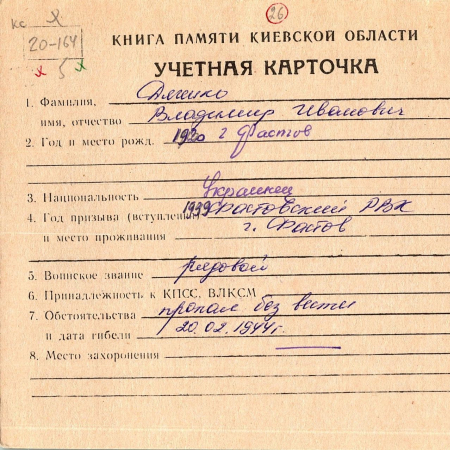 кс х
26
20-164
х 5 х
КНИГА ПАМЯТИ КИЕВСКОЙ ОБЛАСТИ
УЧЕТНАЯ КАРТОЧКА
1. Фамилия,
имя, отчество Владимир Иванович
2. Год и место рожд. 1920 г Фастов
3. Национальность украинец
4. Год призыва (вступления) 1939 Фастовский РВК
и место проживания г. Фастов
5. Воинское звание рядовой
6. Принадлежность к КПСС, ВЛКСМ
7. Обстоятельства пропал без вести
и дата гибели 20.02.1944г.
8. Место захоронения